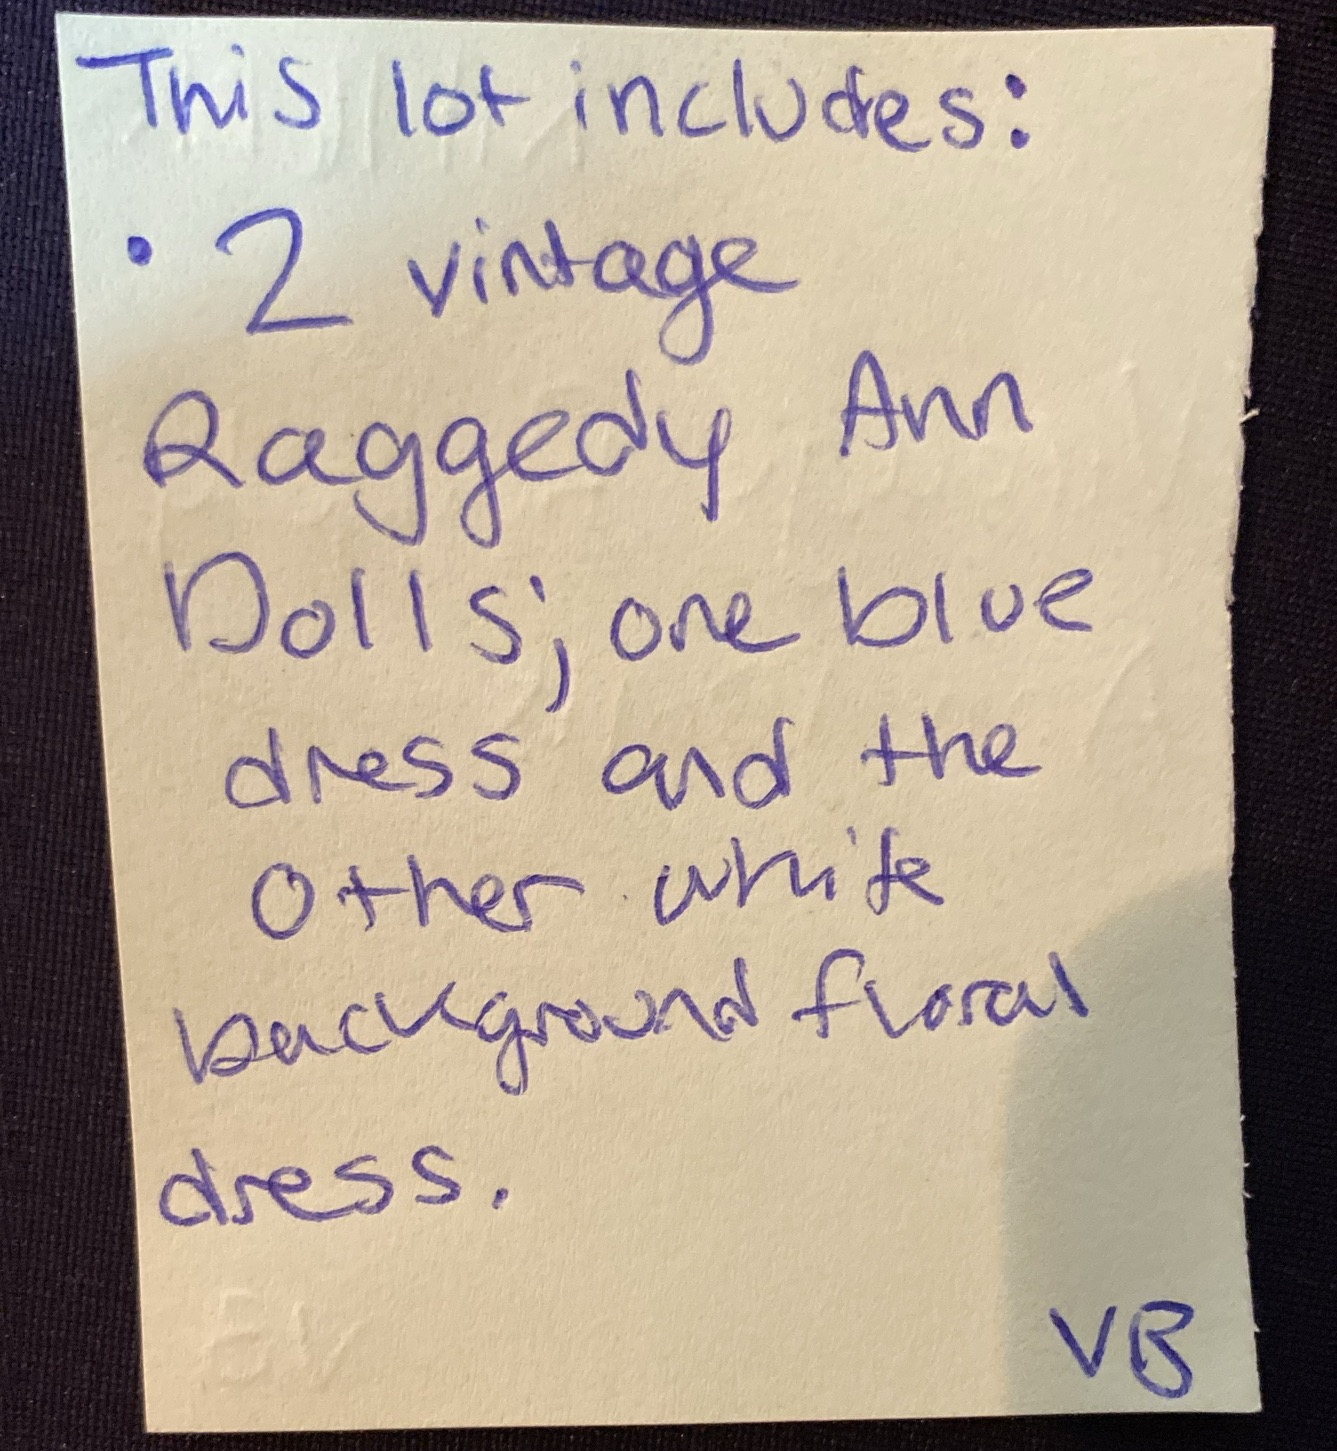 This lot includes:
• 2 vintage
Raggedy Ann
Dolls; one blue
dress and the
other white
background floral
dress.
VB